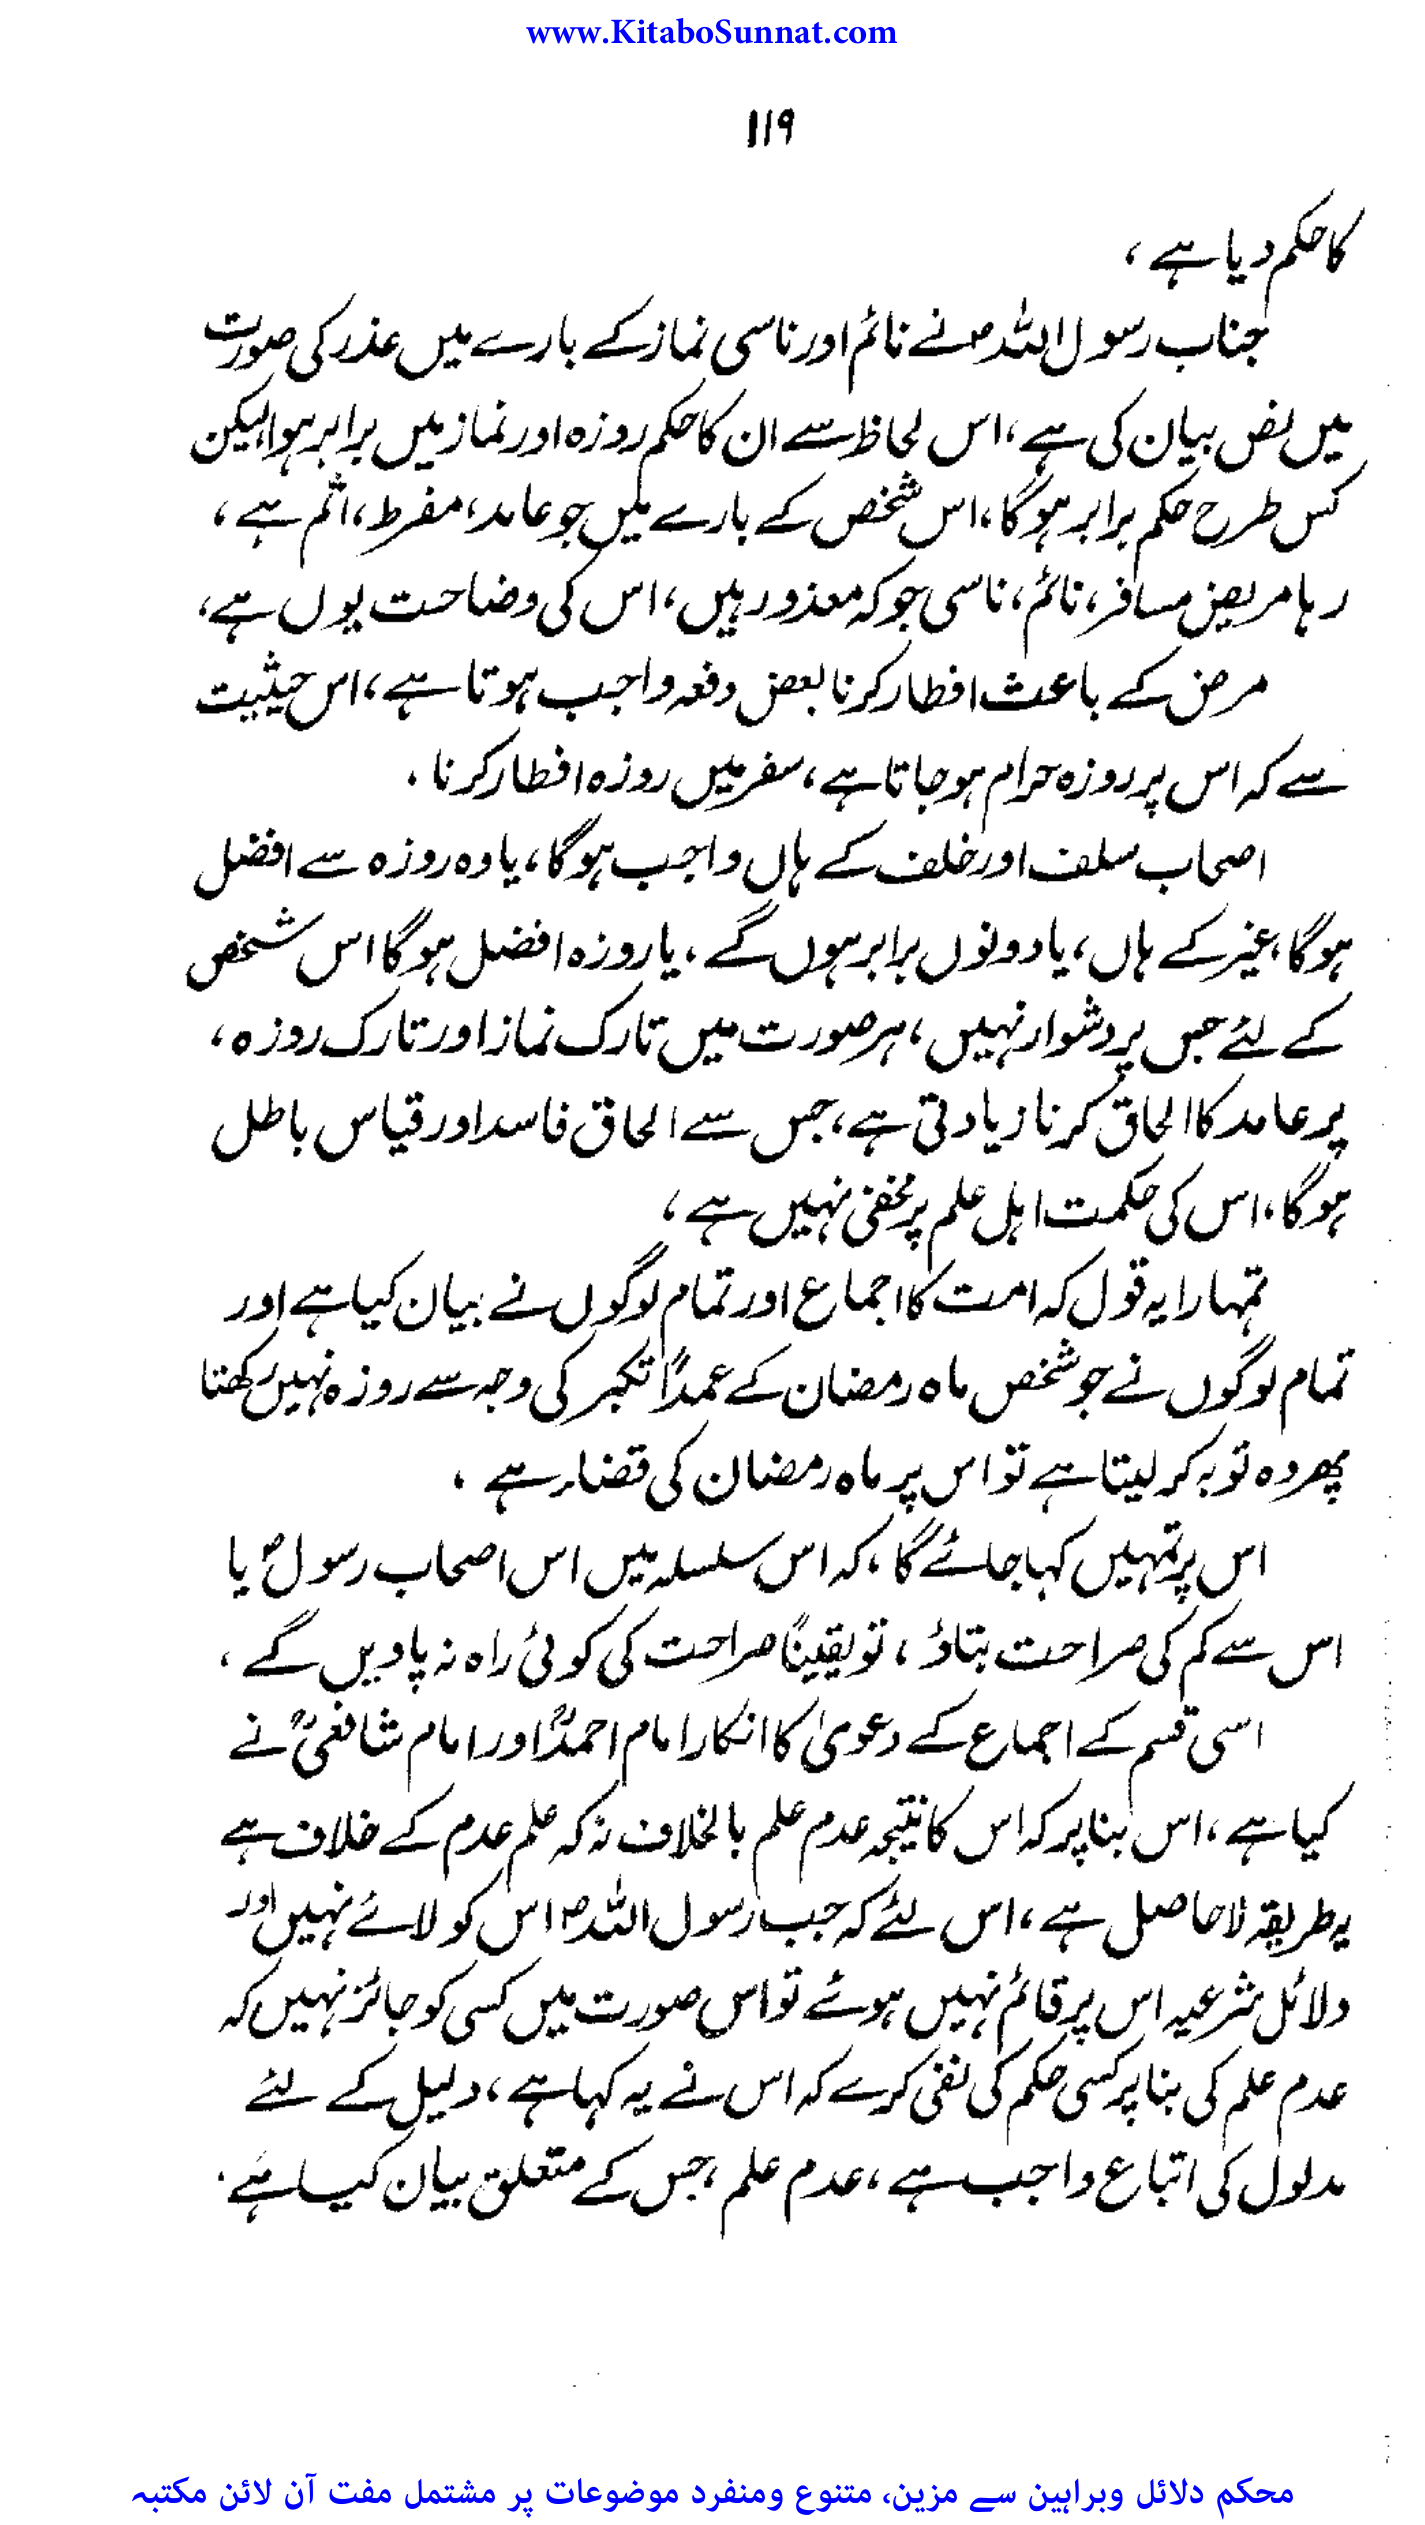 www.KitaboSunnat.com
۱۱۹
کا حکم دیا ہے ،
جناب رسول اللہؐ نے نائم اور ناسی نماز کے بارے میں عذر کی صورت
میں نص بیان کی ہے ، اس لحاظ سے ان کا حکم روزہ اور نماز میں برابر ہوا لیکن
کس طرح حکم برابر ہوگا ، اس شخص کے بارے میں جو عامد ، مفرط ، اثم ہے ،
رہا مریض مسافر ، نائم ، ناسی جو کہ معذور ہیں ، اس کی وضاحت یوں ہے ،
مرض کے باعث افطار کرنا بعض دفعہ واجب ہوتا ہے ، اس حیثیت
سے کہ اس پر روزہ حرام ہو جاتا ہے ، سفر میں روزہ افطار کرنا .
اصحاب سلف اور خلف کے ہاں واجب ہوگا ، یا وہ روزہ سے افضل
ہوگا ، غیر کے ہاں ، یا دونوں برابر ہوں گے ، یا روزہ افضل ہوگا اس شخص
کے لئے جس پر دشوار نہیں ، ہر صورت میں تارک نماز اور تارک روزہ ،
پر عامد کا الحاق کرنا زیادتی ہے ، جس سے الحاق فاسد اور قیاس باطل
ہوگا ، اس کی حکمت اہل علم پر مخفی نہیں ہے ،
تمہارا یہ قول کہ امت کا اجماع اور تمام لوگوں نے بیان کیا ہے اور
تمام لوگوں نے جو شخص ماہ رمضان کے عمداً تکبر کی وجہ سے روزہ نہیں رکھتا
پھر وہ توبہ کر لیتا ہے تو اس پر ماہ رمضان کی قضاء ہے ،
اس پر تمہیں کہا جائے گا ، کہ اس سلسلہ میں اس اصحاب رسولؐ یا
اس سے کم کی صراحت بتاؤ ، تو یقیناً صراحت کی کوئی راہ نہ پاویں گے ،
اسی قسم کے اجماع کے دعویٰ کا انکار امام احمدؒ اور امام شافعیؒ نے
کیا ہے ، اس بنا پر کہ اس کا نتیجہ عدم علم بالخلاف نہ کہ علم عدم کے خلاف ہے
یہ طریقہ لاحاصل ہے ، اس لئے کہ جب رسول اللہؐ اس کو لائے نہیں اور
دلائل شرعیہ اس پر قائم نہیں ہوئے تو اس صورت میں کسی کو جائز نہیں کہ
عدم علم کی بنا پر کسی حکم کی نفی کرے کہ اس نے یہ کہا ہے ، دلیل کے لئے
مدلول کی اتباع واجب ہے ، عدم علم ، جس کے متعلق بیان کیا ہے .
محکم دلائل وبراہین سے مزین، متنوع ومنفرد موضوعات پر مشتمل مفت آن لائن مکتبہ